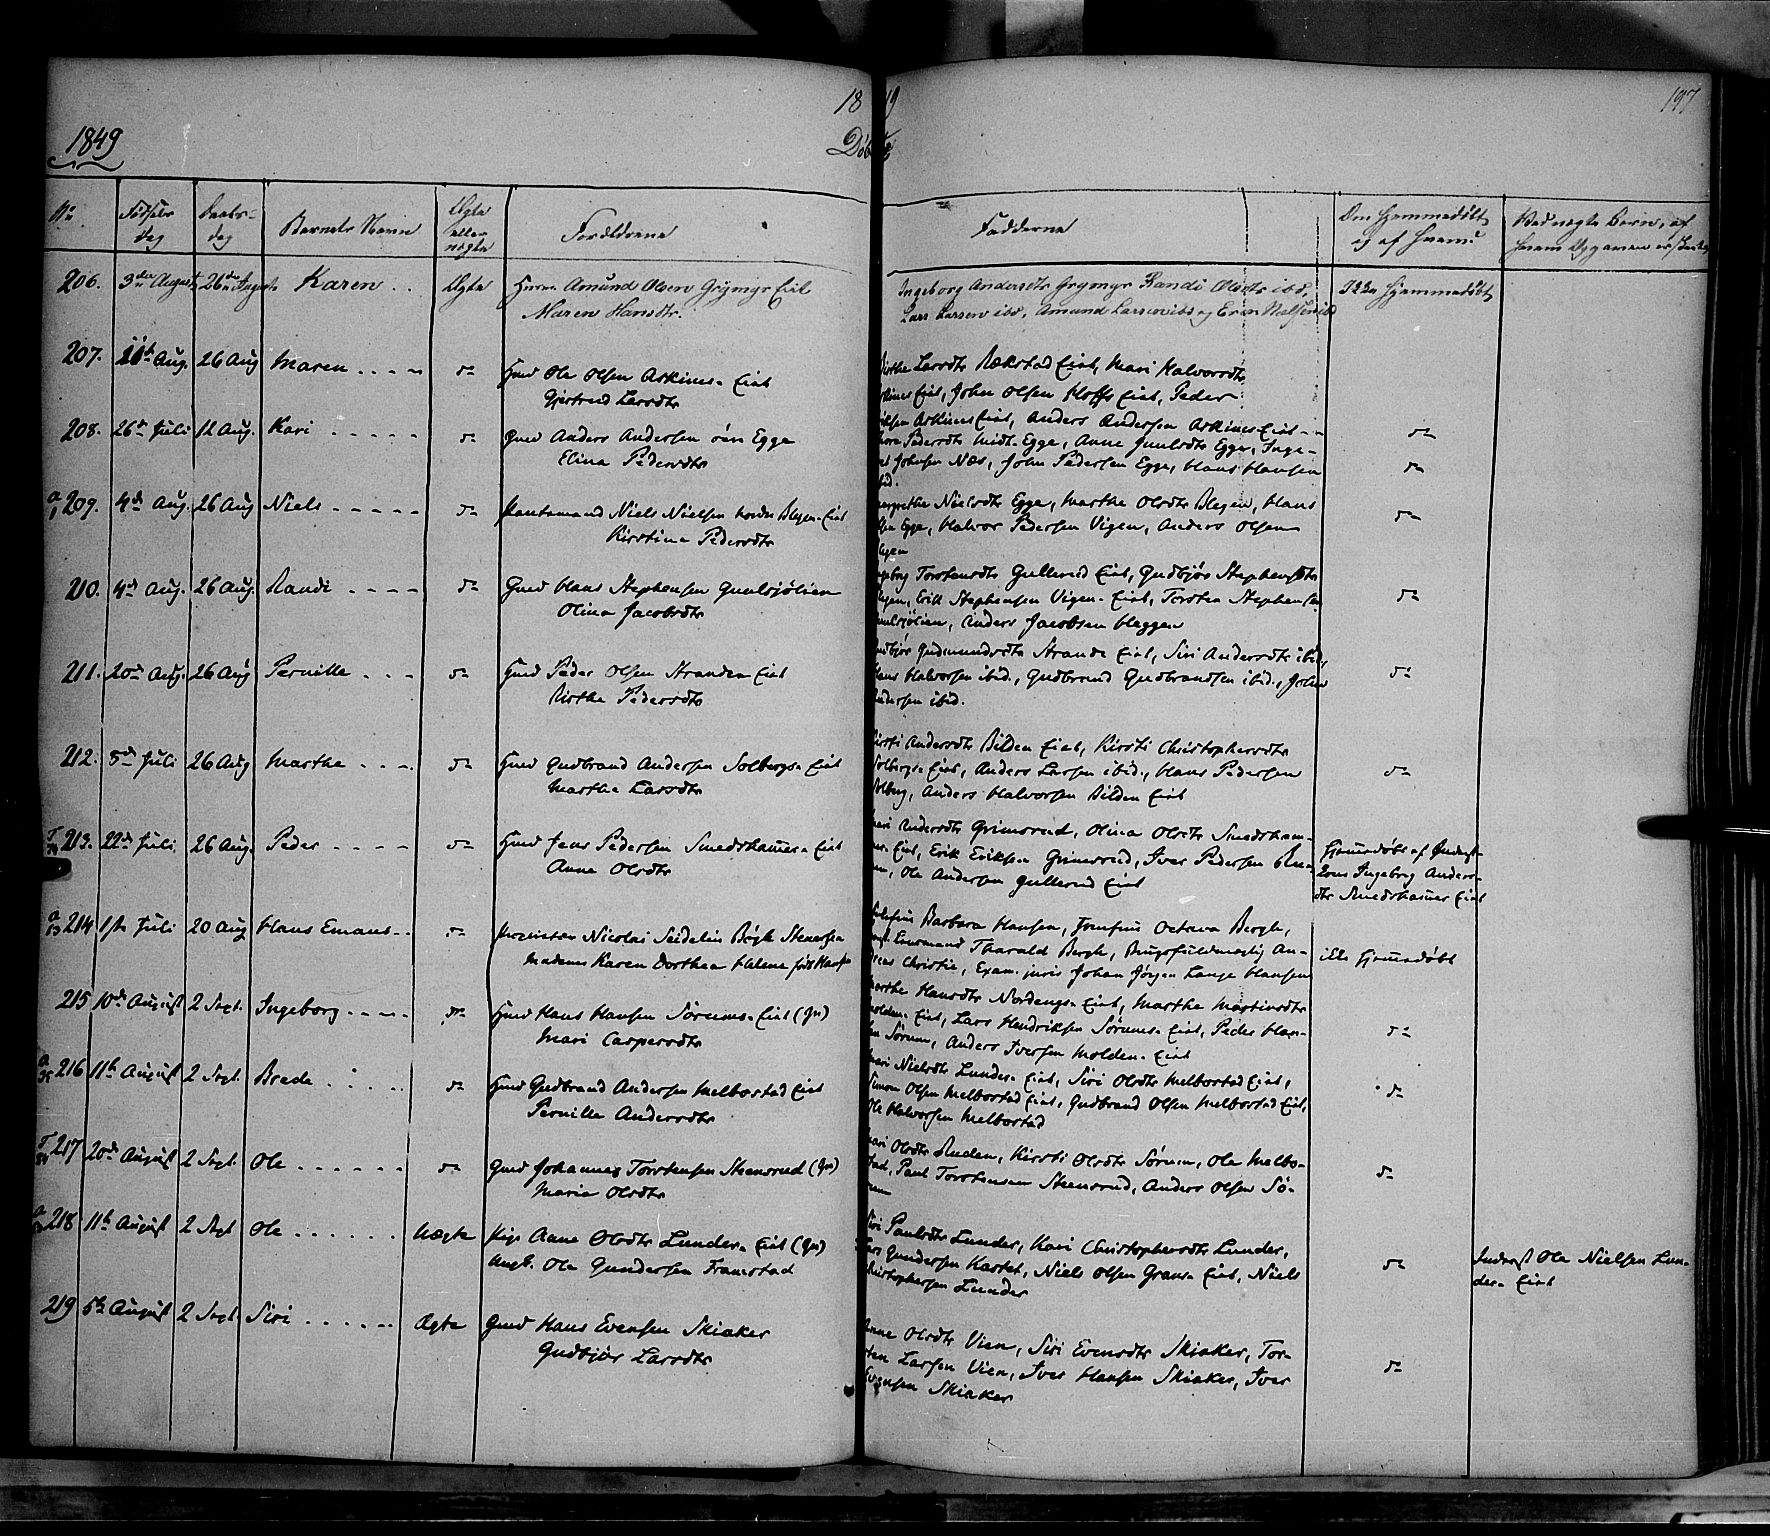 1849
18 49
197
Døbte
No Fødsels dag Daabs- dag Barnets Navn Ægte eller uægte Forældrene Fadderne Om Hjemmedøbt og af hvem?
206. 3die August 26de August Karen Ægte Huusm. Amund Olsen Grymyr Eiet
Maren Hansdtr.
Ingeborg Andersdtr Grymyr Randi Olsdtr ibd. Ikke Hjemmedøbt
Lars Larsen ibd, Amund Larsen ibd og Even Nielsen ibd
207. 11te Aug. 26 Aug Maren do Huusmd Ole Olsen Askims- Eiet
Gjertrud Larsdtr
Larsdtr Rækstad Eiet, Mari Halvorsdtr
Eiet, John Olsen Hoffs Eiet, Peder
Askims Eiet, Anders Andersen Askims Eiet do
208. 26de Juli 12 Aug. Kari do Gmd Anders Andersen øvre Egge
Elina Pedersdtr
Pedersdtr Midt. Egge, Anne Gunlsdtr Egge, Inge-
Johnsen Næs, John Pedersen Egge, Hans Hansen do
ibid.
209. 4de Aug. 26 Aug Niels do Niels Nielsen Blegen- Eiet
Kirstine Pedersdtr
Nielsdtr Egge, Marthe Olsdtr Blegen, Hans
Egge, Halvor Pedersen Vigen, Anders Olsen do
210. 4de Aug. 26 Aug. Randi do Gmd Hans Stephensen
Olina Jacobsdtr
Torstensdtr Gullerud Eiet, Gudbjør Stephensdtr
Erik Stephensen Vigen- Eiet, Torsten Stephensen do
Anders Jacobsen Heggen
211. 20de Aug. 26 Aug Pernille do Hmd Peder Olsen Stranden Eiet
Birthe Pedersdtr
Gudmundsdtr Strande Eiet, Siri Andersdtr ibid,
Halvorsen ibid., Gudbrand Gudbrandsen ibid., John do
Andersen ibid.
212. 5de Juli 26 Aug Marthe do Hmd Gudbrand Andersen Solbergs- Eiet
Marthe Larsdtr
Kirsti Andersdtr Bilden Eiet, Kirsti Christophersdtr
Solbergs- Eiet, Anders Larsen ibid., Hans Pedersen do
Solberg, Anders Halvorsen Bilden Eiet
213. 22de Juli 26 Aug. Peder do Hmd Jens Pedersen Smedshamer- Eiet
Anne Olsdtr
Mari Andersdtr Grimsrud, Olina Olsdtr Smedsham-
Eiet, Erik Eriksen Grimsrud, Iver Pedersen
Ole Andersen Gullerud Eiet
Hjemmedøbt af
Ingeborg Anders-
dtr Smedshamer Eiet
214 1ste Juli 20 Aug Hans Emans do Nicolai Seidelin Bøgh Stenersen
Madame Karen Dorthea Helene født
Barbara Hansen, Josefine Octava Bergh,
Tharald Bergh, An-
Christie, Exam. juris Johan Jørgen Lange Hansen ikke Hjemmedøbt
215 10de August 2 Sept. Ingeborg do Hmd Hans Hansen Sørums- Eiet (Gn)
Mari Caspersdtr
Marthe Hansdtr Nordengs- Eiet, Marthe Martinsdtr
Molden- Eiet, Lars Hendriksen Sørums- Eiet, Peder Han- do
Sørum, Anders Iversen Molden- Eiet
216 11te August 2 Sept. Brede do Hmd Gudbrand Andersen Melbostad Eiet
Pernille Andersdtr
Mari Nielsdtr Lunder- Eiet, Siri Olsdtr Melbostad Eiet,
Simon Olsen Melbostad Eiet, Gudbrand Olsen Melbostad Eiet, do
Ole Halvorsen Melbostad
217 20de August 2 Sept. Ole do Gmd Johannes Torstensen Steensrud (Gn)
Marie Olsdtr
Mari Olsdtr Ruden, Kirsti Olsdtr Sørum, Ole Melbo-
stad, Paul Torstensen Steensrud, Anders Olsen Sø- do
rum
218 11te August 2 Sept Ole Uægte Pige Anne Olsdtr Lunder- Eiet (Gn)
Ungk. Ole Gundersen Framstad
Siri Paulsdtr Lunder, Kari Christophersdtr Lunder,
Lars Gundersen Kastet, Niels Olsen Grans- Eiet, Niels do
Christophersen Lunder
Inderst Ole Nielsen Lun-
der- Eiet
219 5te August 2 Sept. Siri Ægte Gmd Hans Evensen Skiaker
Gudbjør Larsdtr
Anne Olsdtr Vien, Siri Evensdtr Skiaker, Tor-
sten Larsen Vien, Iver Hansen Skiaker, Iver do
Evensen Skiaker